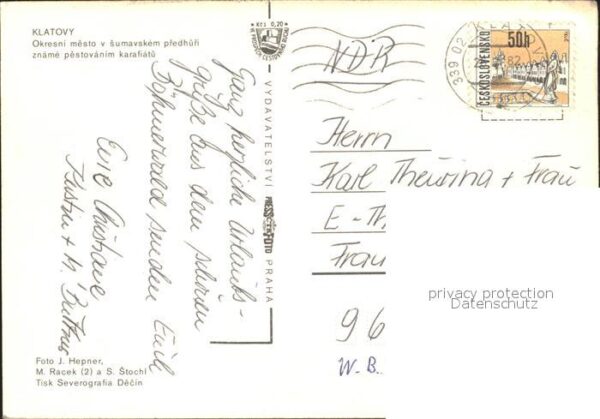 KLATOVY
Okresní město v šumavském předhůří
známé pěstováním karafiátů
Kčs 0,20
Ganz herzliche Urlaubs-
grüße aus dem schönen
Böhmerwald senden Euch
Eure Christiane
VYDAVATELSTVÍ PRESSFOTO PRAHA
Foto J. Hepner,
M. Racek (2) a S. Štochl
Tisk Severografia Děčín
NDR
339 02 KLATOVY
82
ČESKOSLOVENSKO
50h
Herrn
Karl Theurina + Frau
E-Th
Frau
96
W.B.
privacy protection
Datenschutz